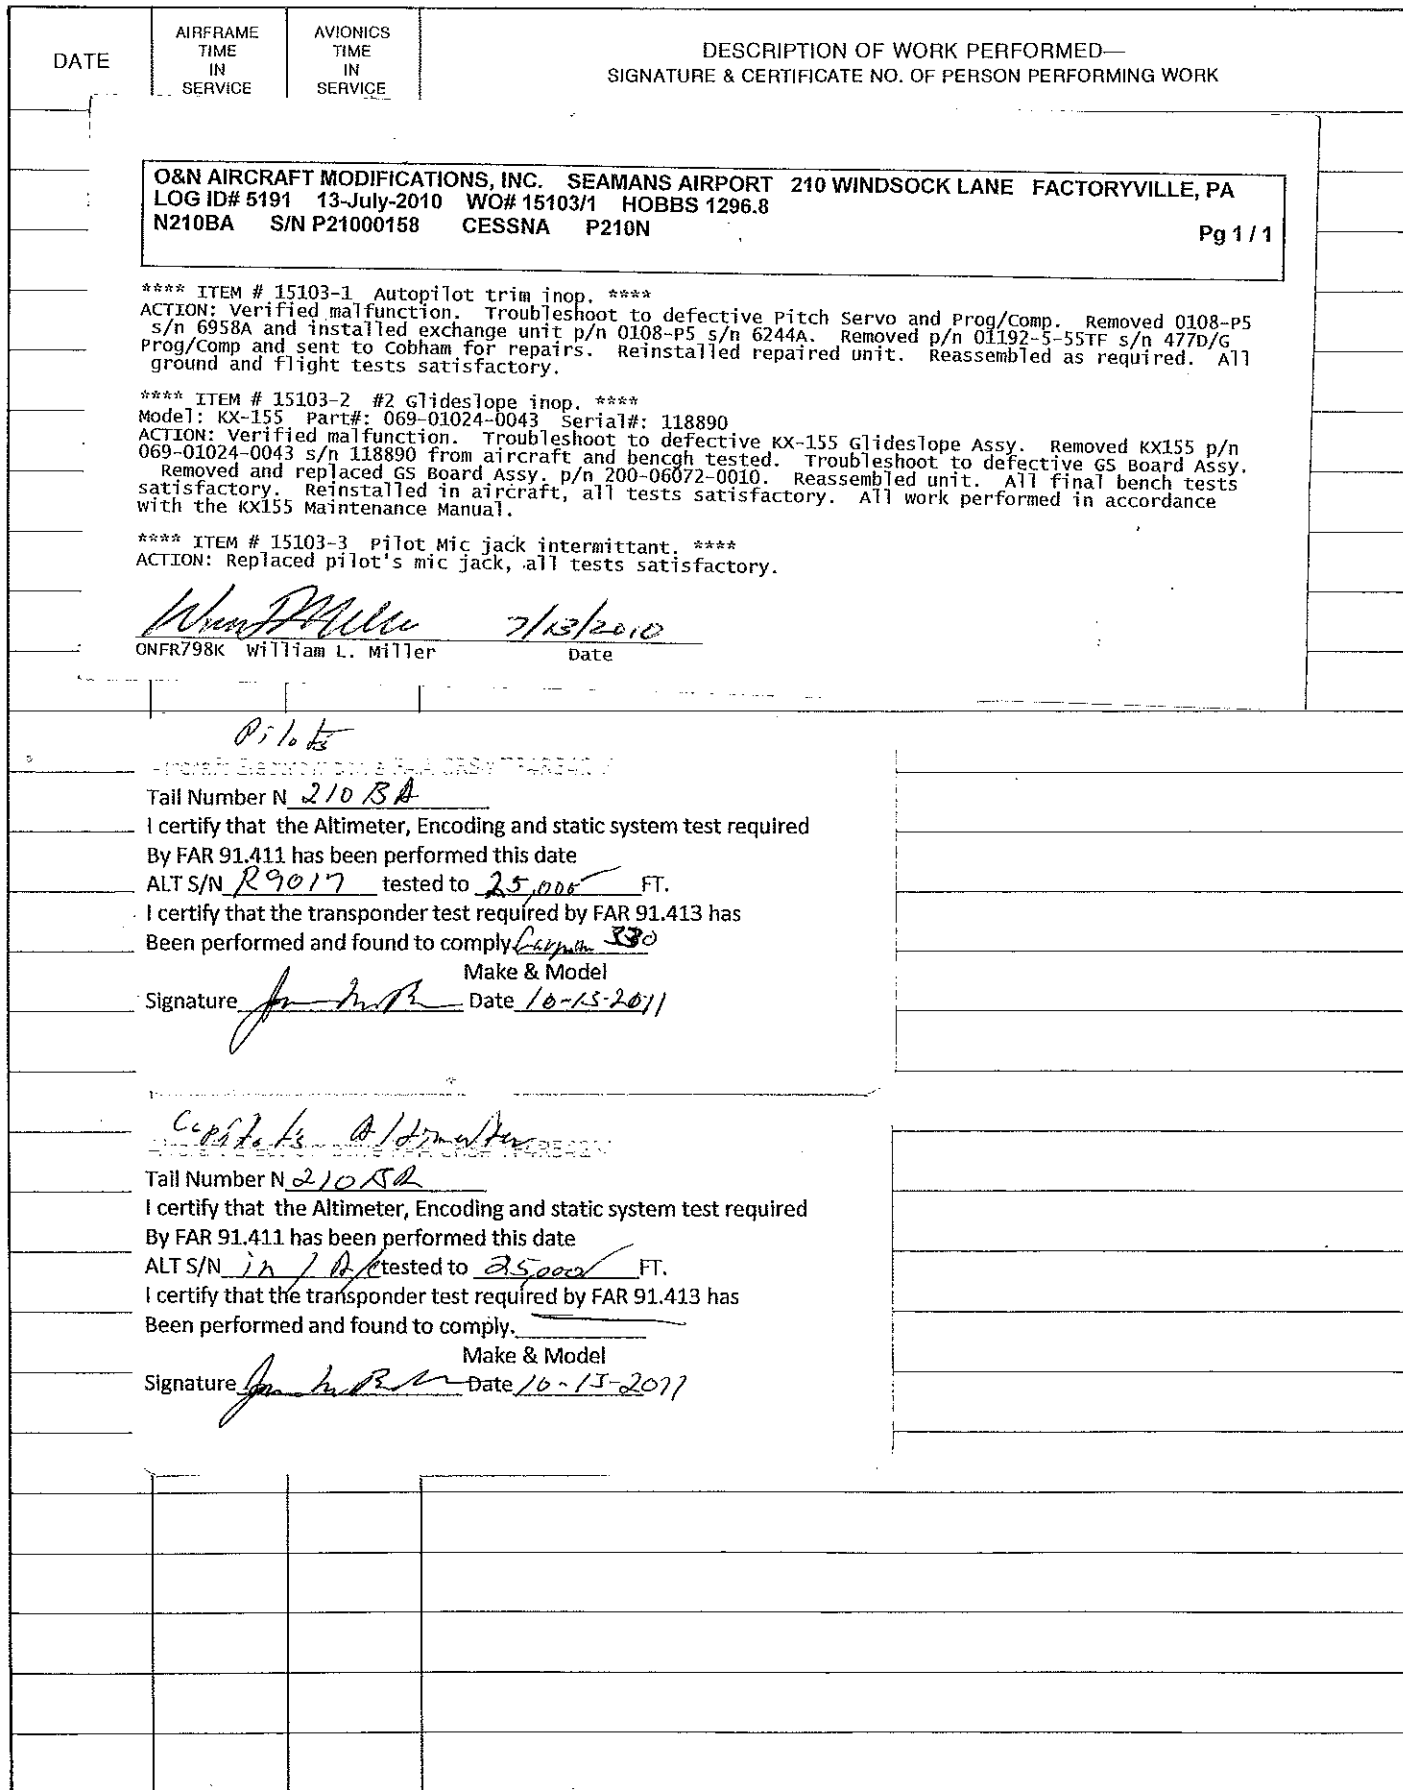 DATE
AIRFRAME TIME IN SERVICE
AVIONICS TIME IN SERVICE
DESCRIPTION OF WORK PERFORMED—
SIGNATURE & CERTIFICATE NO. OF PERSON PERFORMING WORK
O&N AIRCRAFT MODIFICATIONS, INC. SEAMANS AIRPORT 210 WINDSOCK LANE FACTORYVILLE, PA
LOG ID# 5191 13-July-2010 WO# 15103/1 HOBBS 1296.8
N210BA S/N P21000158 CESSNA P210N
Pg 1 / 1
**** ITEM # 15103-1 Autopilot trim inop. ****
ACTION: Verified malfunction. Troubleshoot to defective Pitch Servo and Prog/Comp. Removed 0108-P5
s/n 6958A and installed exchange unit p/n 0108-P5 s/n 6244A. Removed p/n 01192-5-55TF s/n 477D/G
Prog/Comp and sent to Cobham for repairs. Reinstalled repaired unit. Reassembled as required. All
ground and flight tests satisfactory.
**** ITEM # 15103-2 #2 Glideslope inop. ****
Model: KX-155 Part#: 069-01024-0043 Serial#: 118890
ACTION: Verified malfunction. Troubleshoot to defective KX-155 Glideslope Assy. Removed KX155 p/n
069-01024-0043 s/n 118890 from aircraft and bencgh tested. Troubleshoot to defective GS Board Assy.
Removed and replaced GS Board Assy. p/n 200-06072-0010. Reassembled unit. All final bench tests
satisfactory. Reinstalled in aircraft, all tests satisfactory. All work performed in accordance
with the KX155 Maintenance Manual.
**** ITEM # 15103-3 Pilot Mic jack intermittant. ****
ACTION: Replaced pilot's mic jack, all tests satisfactory.
7/13/2010
ONFR798K William L. Miller Date
Pilots
Tail Number N 210BA
I certify that the Altimeter, Encoding and static system test required
By FAR 91.411 has been performed this date
ALT S/N R9017 tested to 25,000 FT.
I certify that the transponder test required by FAR 91.413 has
Been performed and found to comply 330
Make & Model
Signature Date 10-13-2011
Altimeter
Tail Number N 210BA
I certify that the Altimeter, Encoding and static system test required
By FAR 91.411 has been performed this date
ALT S/N in A/C tested to 25,000 FT.
I certify that the transponder test required by FAR 91.413 has
Been performed and found to comply.
Make & Model
Signature Date 10-13-2011